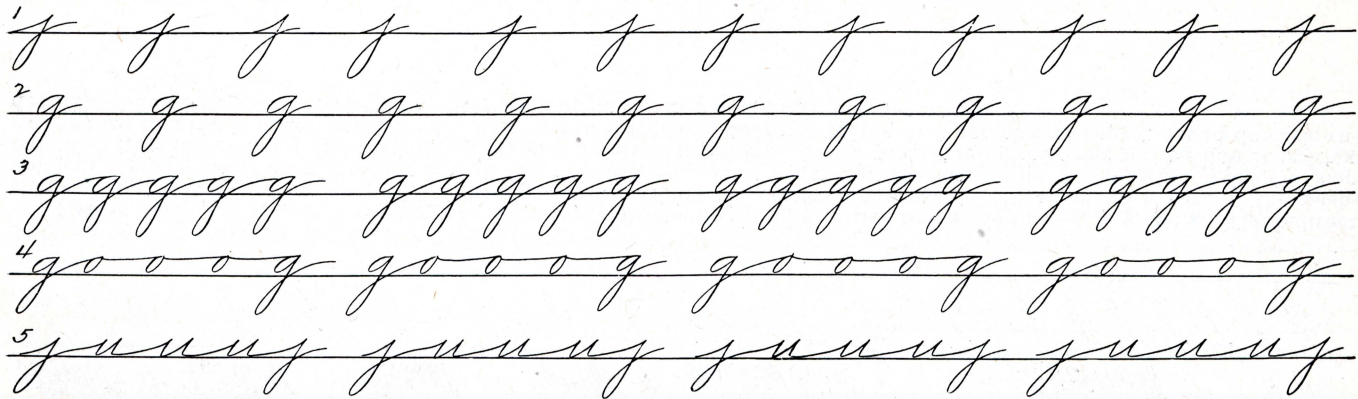 1 j j j j j j j j j j j j
2 g g g g g g g g g g g g
3 ggggg ggggg ggggg ggggg
4 gooog gooog gooog gooog
5 juuuj juuuj juuuj juuuj